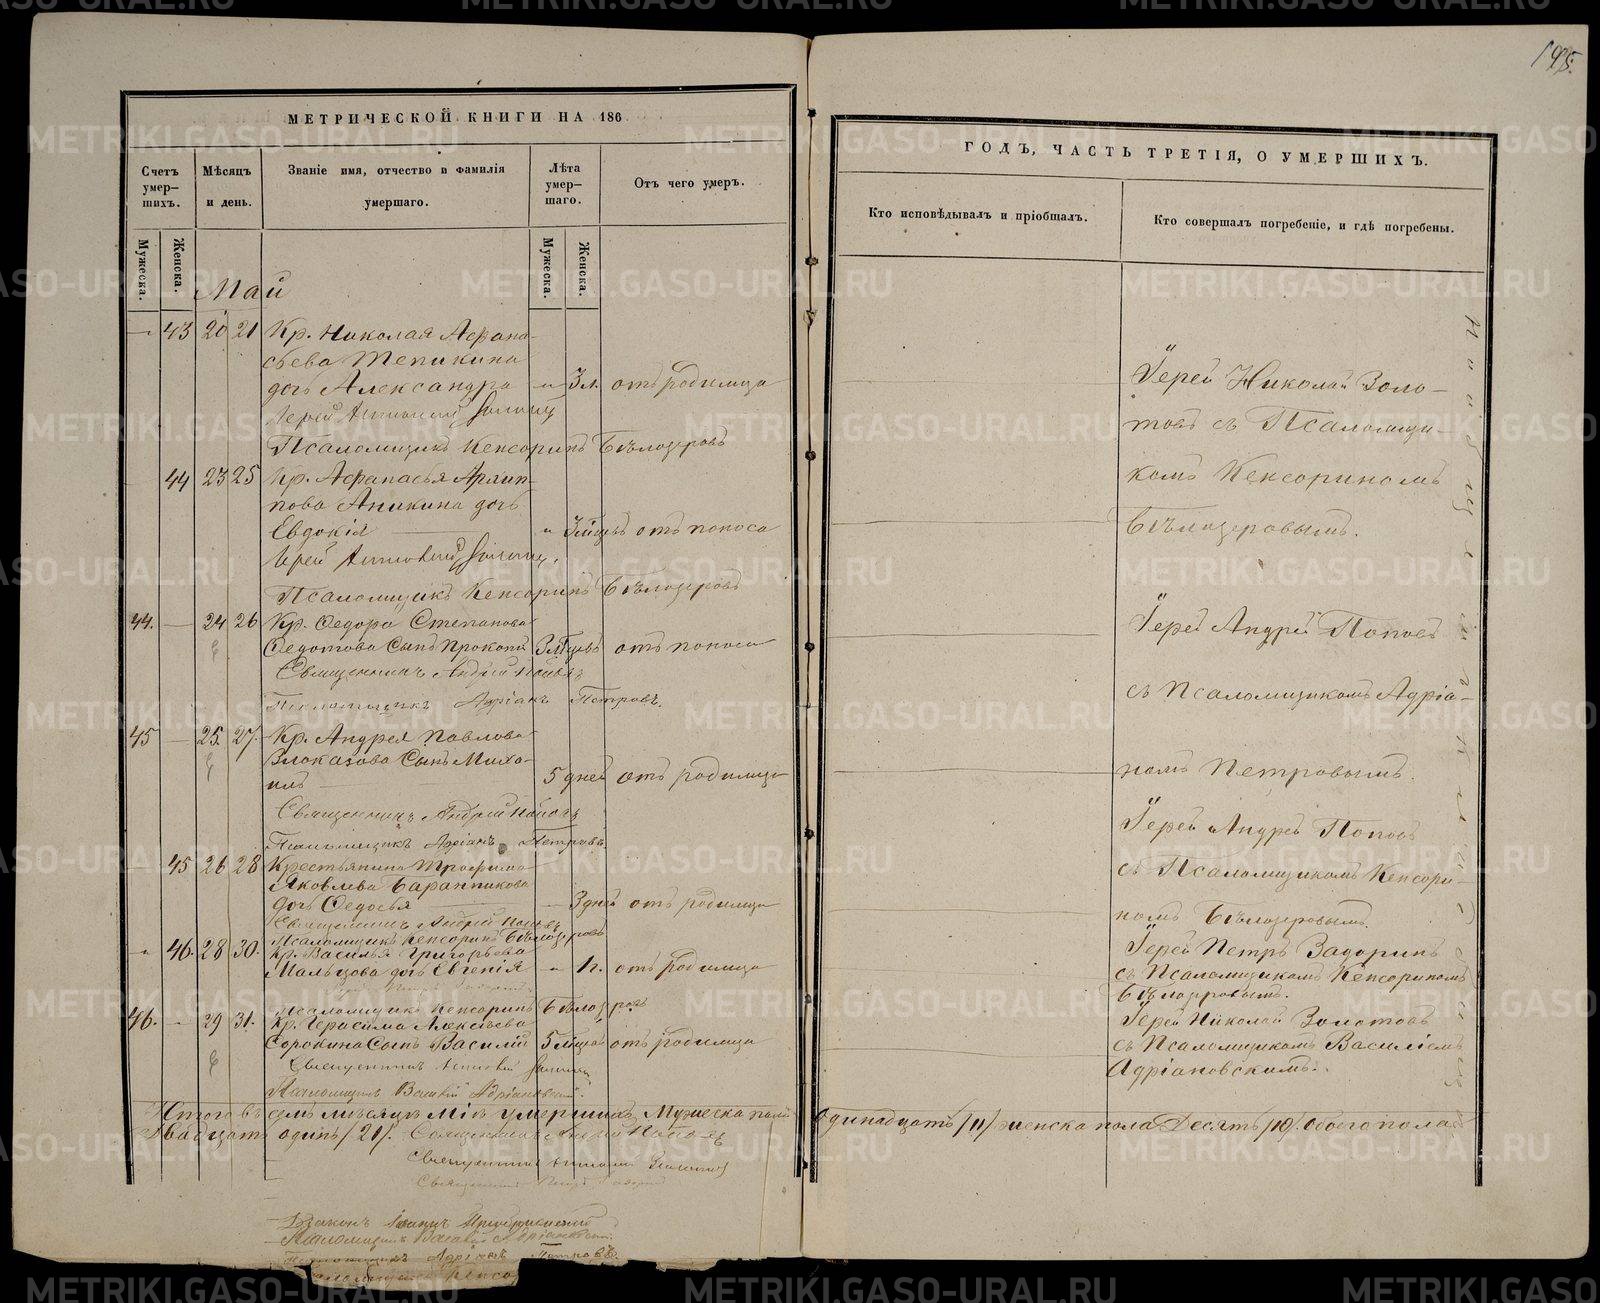 195.
МЕТРИЧЕСКОЙ КНИГИ НА 186
Счетъ умер-шихъ.
Мѣсяцъ и день.
Званіе имя, отчество и фамилія умершаго.
Лѣта умер-шаго.
Отъ чего умеръ.
Мужеска.
Женска.
Мужеска.
Женска.
Май
43 20 21 Кр. Николая Афана-
сьева Тепикина
дочь Александра 3 л. отъ родимца
Іерей Николай
Псаломщикъ Кенсоринъ Бѣлозеровъ
44 23 25 Кр. Афанасья Архип-
пова Аникина дочь
Евдокія 3 мѣцъ отъ поноса
Іерей Николай
Псаломщикъ Кенсоринъ Бѣлозеровъ
44. 24 26 Кр. Ѳедора Степанова
Ѳедотова Сынъ Прокопій 3 мѣцовъ отъ поноса
Священникъ Андрей Поповъ
Псаломщикъ Адріанъ Петровъ.
45 25. 27. Кр. Андрея Павлова
Злоказова Сынъ Миха-
илъ 5 дней отъ родимца
Священникъ Андрей Поповъ
Псаломщикъ Адріанъ Петровъ.
45 26 28 Крестьянина Трофима
Яковлева Баранникова
дочь Ѳедосья 3 дней отъ родимца
Священникъ Андрей Поповъ
Псаломщикъ Кенсоринъ Бѣлозеровъ
46. 28 30. Кр. Василья Григорьева
Мальцова дочь Евгенія отъ родимца
Псаломщикъ Кенсоринъ Бѣлозеровъ
46. 29 31. Кр. Герасима Алексѣева
Сорокина Сынъ Василій 5 мѣцовъ отъ родимца
Священникъ Николай
Псаломщикъ Василій Адріановскій.
Итого въ семъ мѣсяцѣ Маѣ умершихъ Мужеска пола
Двадцать одинъ /21/. Священникъ Андрей Поповъ
Священникъ Николай Золотовъ
Священникъ Петръ Задоринъ
Псаломщикъ Василій Адріановскій
Псаломщикъ Адріанъ Петровъ.
ГОДЪ, ЧАСТЬ ТРЕТІЯ, О УМЕРШИХЪ.
Кто исповѣдывалъ и пріобщалъ.
Кто совершалъ погребеніе, и гдѣ погребены.
Іерей Николай Золо-
товъ съ Псаломщи-
комъ Кенсориномъ
Бѣлозеровымъ.
Іерей Андрей Поповъ
съ Псаломщикомъ Адріа-
номъ Петровымъ.
Іерей Андрей Поповъ
съ Псаломщикомъ Кенсори-
номъ Бѣлозеровымъ.
Іерей Петръ Задоринъ
съ Псаломщикомъ Кенсориномъ
Бѣлозеровымъ.
Іерей Николай Золотовъ
съ Псаломщикомъ Василіемъ
Адріановскимъ.
Одинадцать /11/ женска пола Десять /10/. обоего пола
METRIKI.GASO-URAL.RU